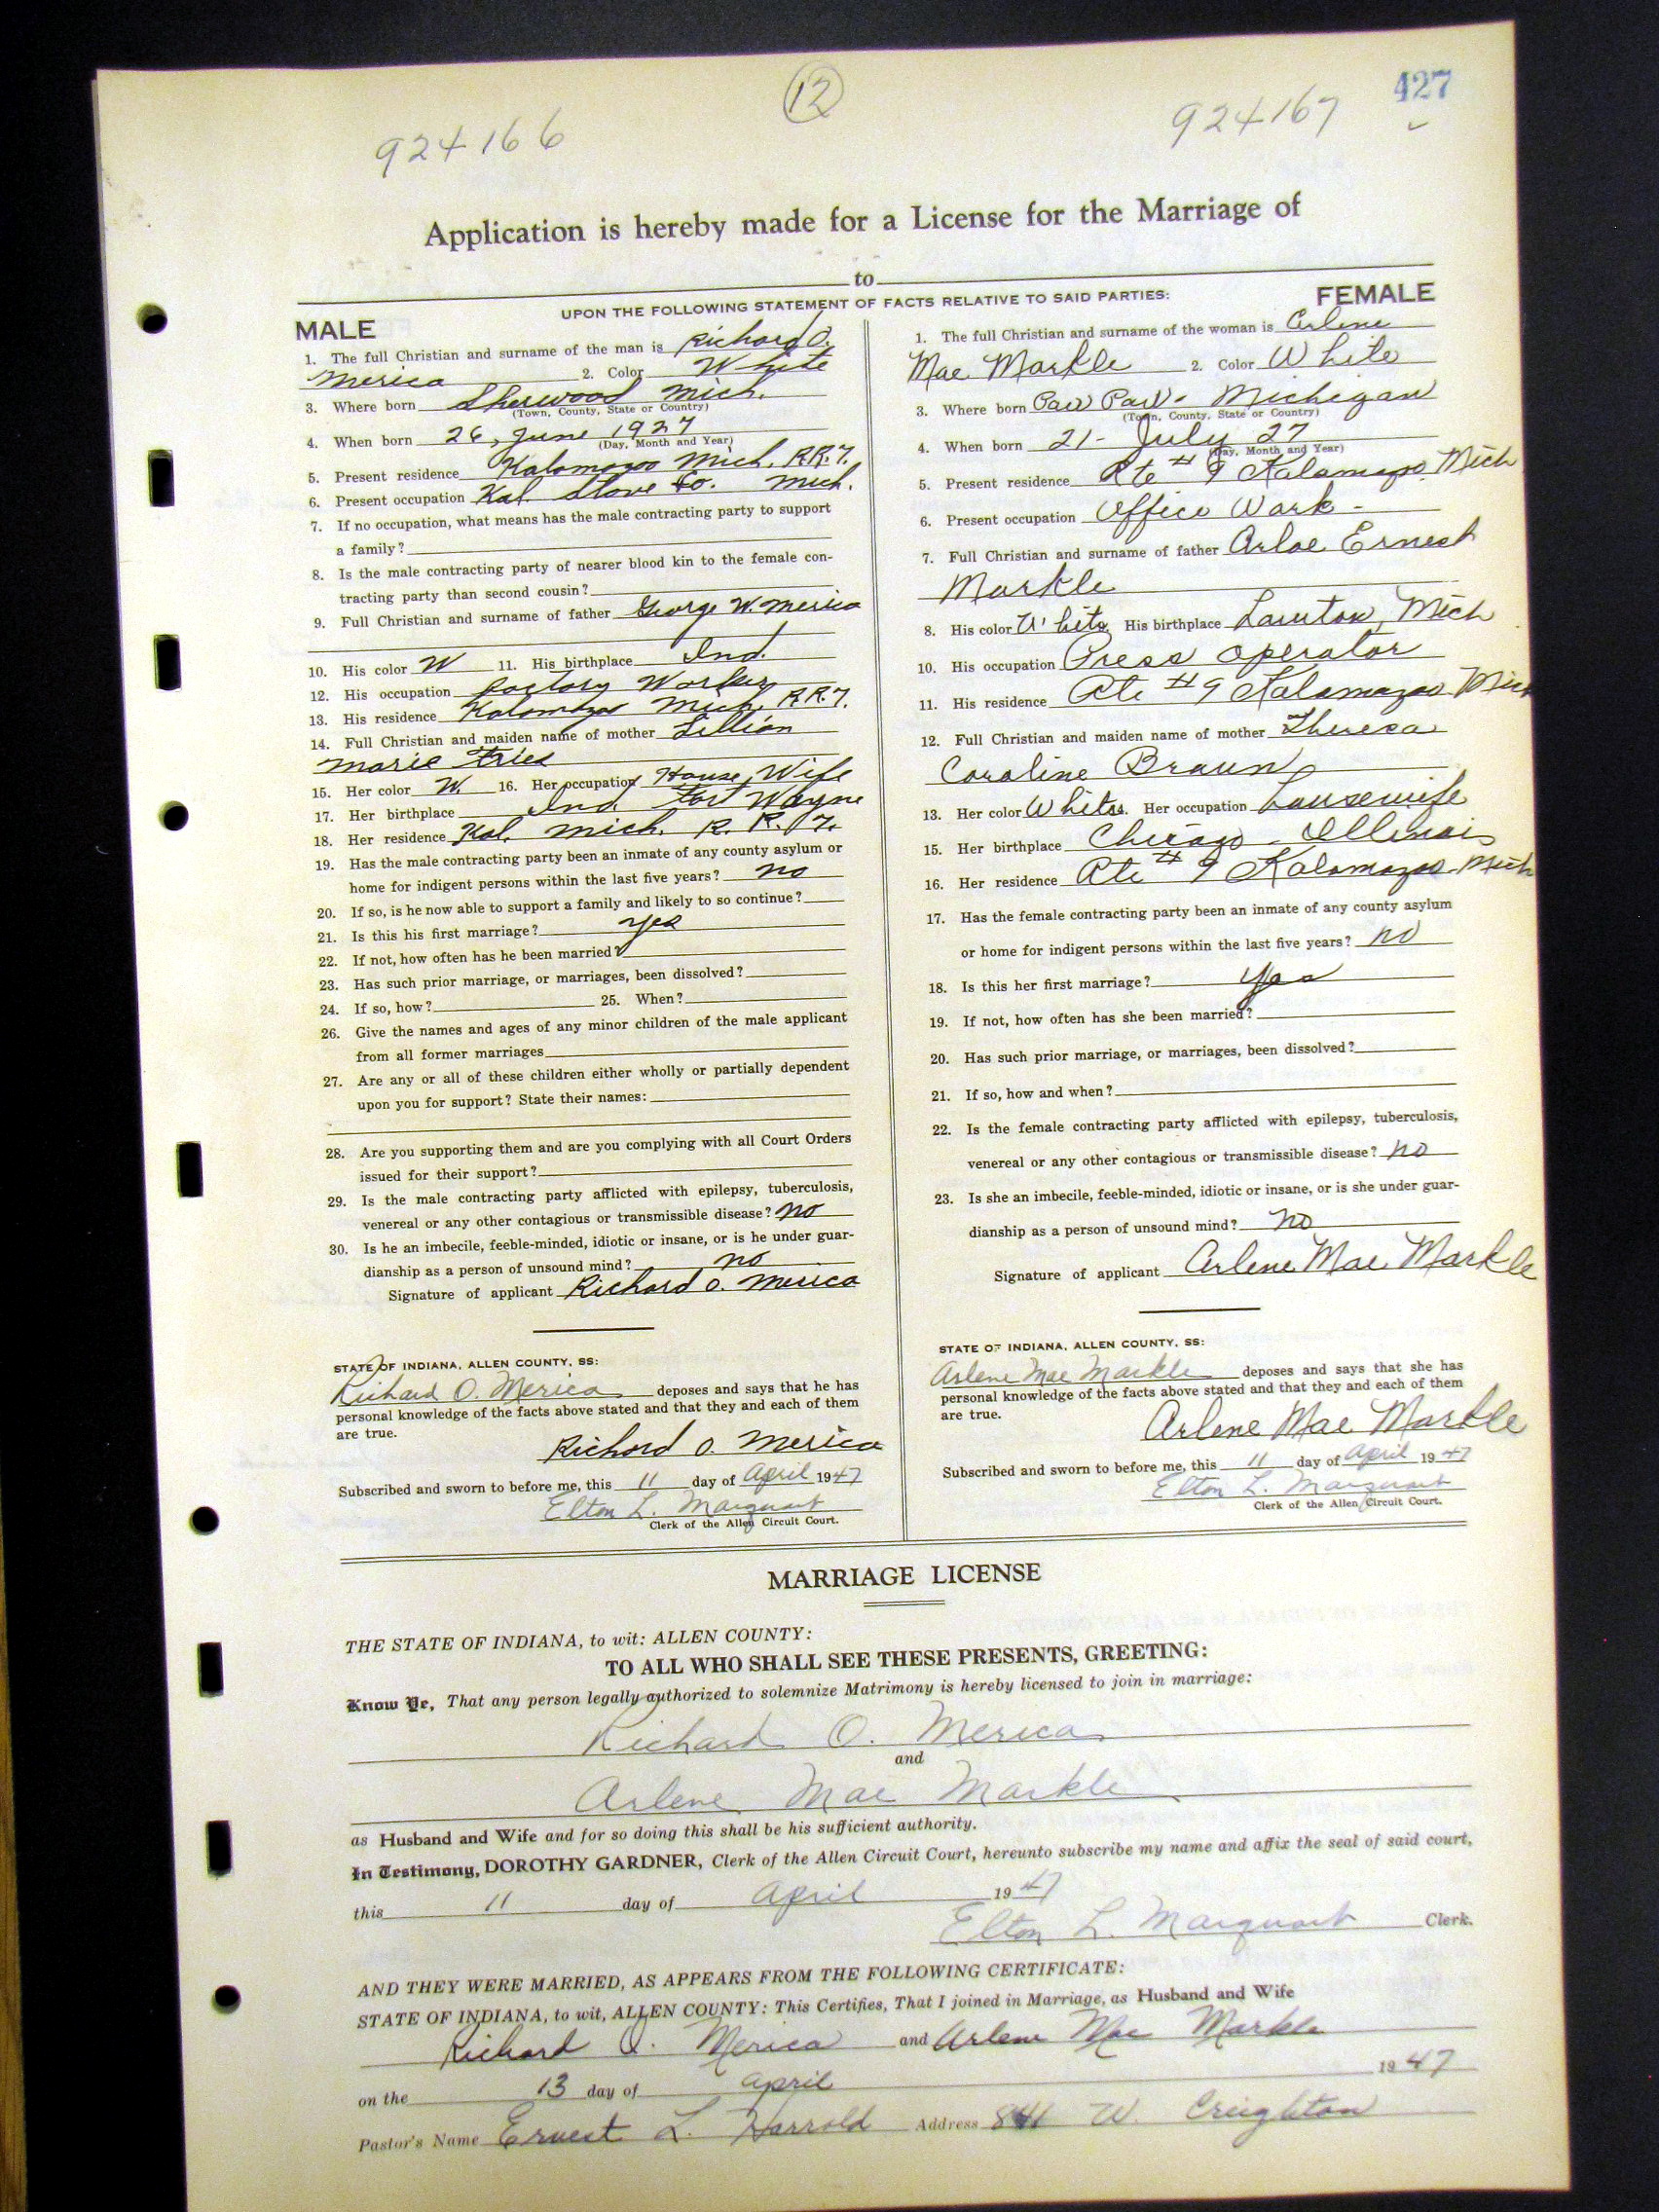 427
12
924166
924167
Application is hereby made for a License for the Marriage of
to
UPON THE FOLLOWING STATEMENT OF FACTS RELATIVE TO SAID PARTIES:
MALE
1. The full Christian and surname of the man is Richard O.
Merica 2. Color White
3. Where born Sherwood Mich.
(Town, County, State or Country)
4. When born 26, June 1927
(Day, Month and Year)
5. Present residence Kalamazoo Mich. R.R.7.
6. Present occupation Kal Stove Co. Mich.
7. If no occupation, what means has the male contracting party to support
a family?
8. Is the male contracting party of nearer blood kin to the female con-
tracting party than second cousin?
9. Full Christian and surname of father George W. Merica
10. His color W 11. His birthplace Ind.
12. His occupation factory Worker
13. His residence Kalamazoo Mich. R.R.7.
14. Full Christian and maiden name of mother Lillian
Marie Fries
15. Her color W. 16. Her occupation House Wife
17. Her birthplace Ind. Fort Wayne
18. Her residence Kal. Mich. R. R. 7.
19. Has the male contracting party been an inmate of any county asylum or
home for indigent persons within the last five years? no
20. If so, is he now able to support a family and likely to so continue?
21. Is this his first marriage? yes
22. If not, how often has he been married?
23. Has such prior marriage, or marriages, been dissolved?
24. If so, how? 25. When?
26. Give the names and ages of any minor children of the male applicant
from all former marriages
27. Are any or all of these children either wholly or partially dependent
upon you for support? State their names:
28. Are you supporting them and are you complying with all Court Orders
issued for their support?
29. Is the male contracting party afflicted with epilepsy, tuberculosis,
venereal or any other contagious or transmissible disease? no
30. Is he an imbecile, feeble-minded, idiotic or insane, or is he under guar-
dianship as a person of unsound mind? no
Signature of applicant Richard O. Merica
STATE OF INDIANA, ALLEN COUNTY, SS:
Richard O. Merica deposes and says that he has
personal knowledge of the facts above stated and that they and each of them
are true.
Richard O. Merica
Subscribed and sworn to before me, this 11 day of April 1947
Elton L. Marquart
Clerk of the Allen Circuit Court.
FEMALE
1. The full Christian and surname of the woman is Arlene
Mae Markle 2. Color White
3. Where born Paw Paw - Michigan
(Town, County, State or Country)
4. When born 21- July 27
(Day, Month and Year)
5. Present residence Rte # 9 Kalamazoo Mich
6. Present occupation Office Work -
7. Full Christian and surname of father Arloe Ernest
Markle
8. His color White His birthplace Lawton, Mich
10. His occupation Press operator
11. His residence Rte #9 Kalamazoo Mich
12. Full Christian and maiden name of mother Theresa
Caroline Braun
13. Her color White Her occupation Housewife
15. Her birthplace Chicago - Illinois
16. Her residence Rte # 9 Kalamazoo - Mich
17. Has the female contracting party been an inmate of any county asylum
or home for indigent persons within the last five years? no
18. Is this her first marriage? yes
19. If not, how often has she been married?
20. Has such prior marriage, or marriages, been dissolved?
21. If so, how and when?
22. Is the female contracting party afflicted with epilepsy, tuberculosis,
venereal or any other contagious or transmissible disease? no
23. Is she an imbecile, feeble-minded, idiotic or insane, or is she under guar-
dianship as a person of unsound mind? no
Signature of applicant Arlene Mae Markle
STATE OF INDIANA, ALLEN COUNTY, SS:
Arlene Mae Markle deposes and says that she has
personal knowledge of the facts above stated and that they and each of them
are true.
Arlene Mae Markle
Subscribed and sworn to before me, this 11 day of April 1947
Elton L. Marquart
Clerk of the Allen Circuit Court.
MARRIAGE LICENSE
THE STATE OF INDIANA, to wit: ALLEN COUNTY:
TO ALL WHO SHALL SEE THESE PRESENTS, GREETING:
Know Ye, That any person legally authorized to solemnize Matrimony is hereby licensed to join in marriage:
Richard O. Merica
and
Arlene Mae Markle
as Husband and Wife and for so doing this shall be his sufficient authority.
In Testimony, DOROTHY GARDNER, Clerk of the Allen Circuit Court, hereunto subscribe my name and affix the seal of said court,
this 11 day of April 1947
Elton L. Marquart Clerk.
AND THEY WERE MARRIED, AS APPEARS FROM THE FOLLOWING CERTIFICATE:
STATE OF INDIANA, to wit, ALLEN COUNTY: This Certifies, That I joined in Marriage, as Husband and Wife
Richard O. Merica and Arlene Mae Markle
on the 13 day of April 1947
Pastor's Name Ernest L. Harrold Address 841 W. Creighton